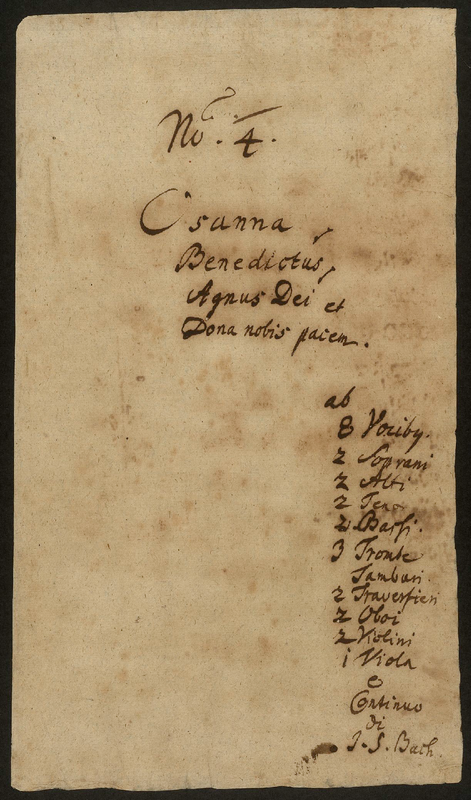 No. 4.
Osanna,
Benedictus,
Agnus Dei et
Dona nobis pacem.
ab
8 Vocibq.
2 Soprani
2 Alti
2 Teno
2 Bassi.
3 Trombe
Tamburi.
2 Traversieri
2 Oboi
2 Violini
1 Viola
e
Continuo
di
J. S. Bach.